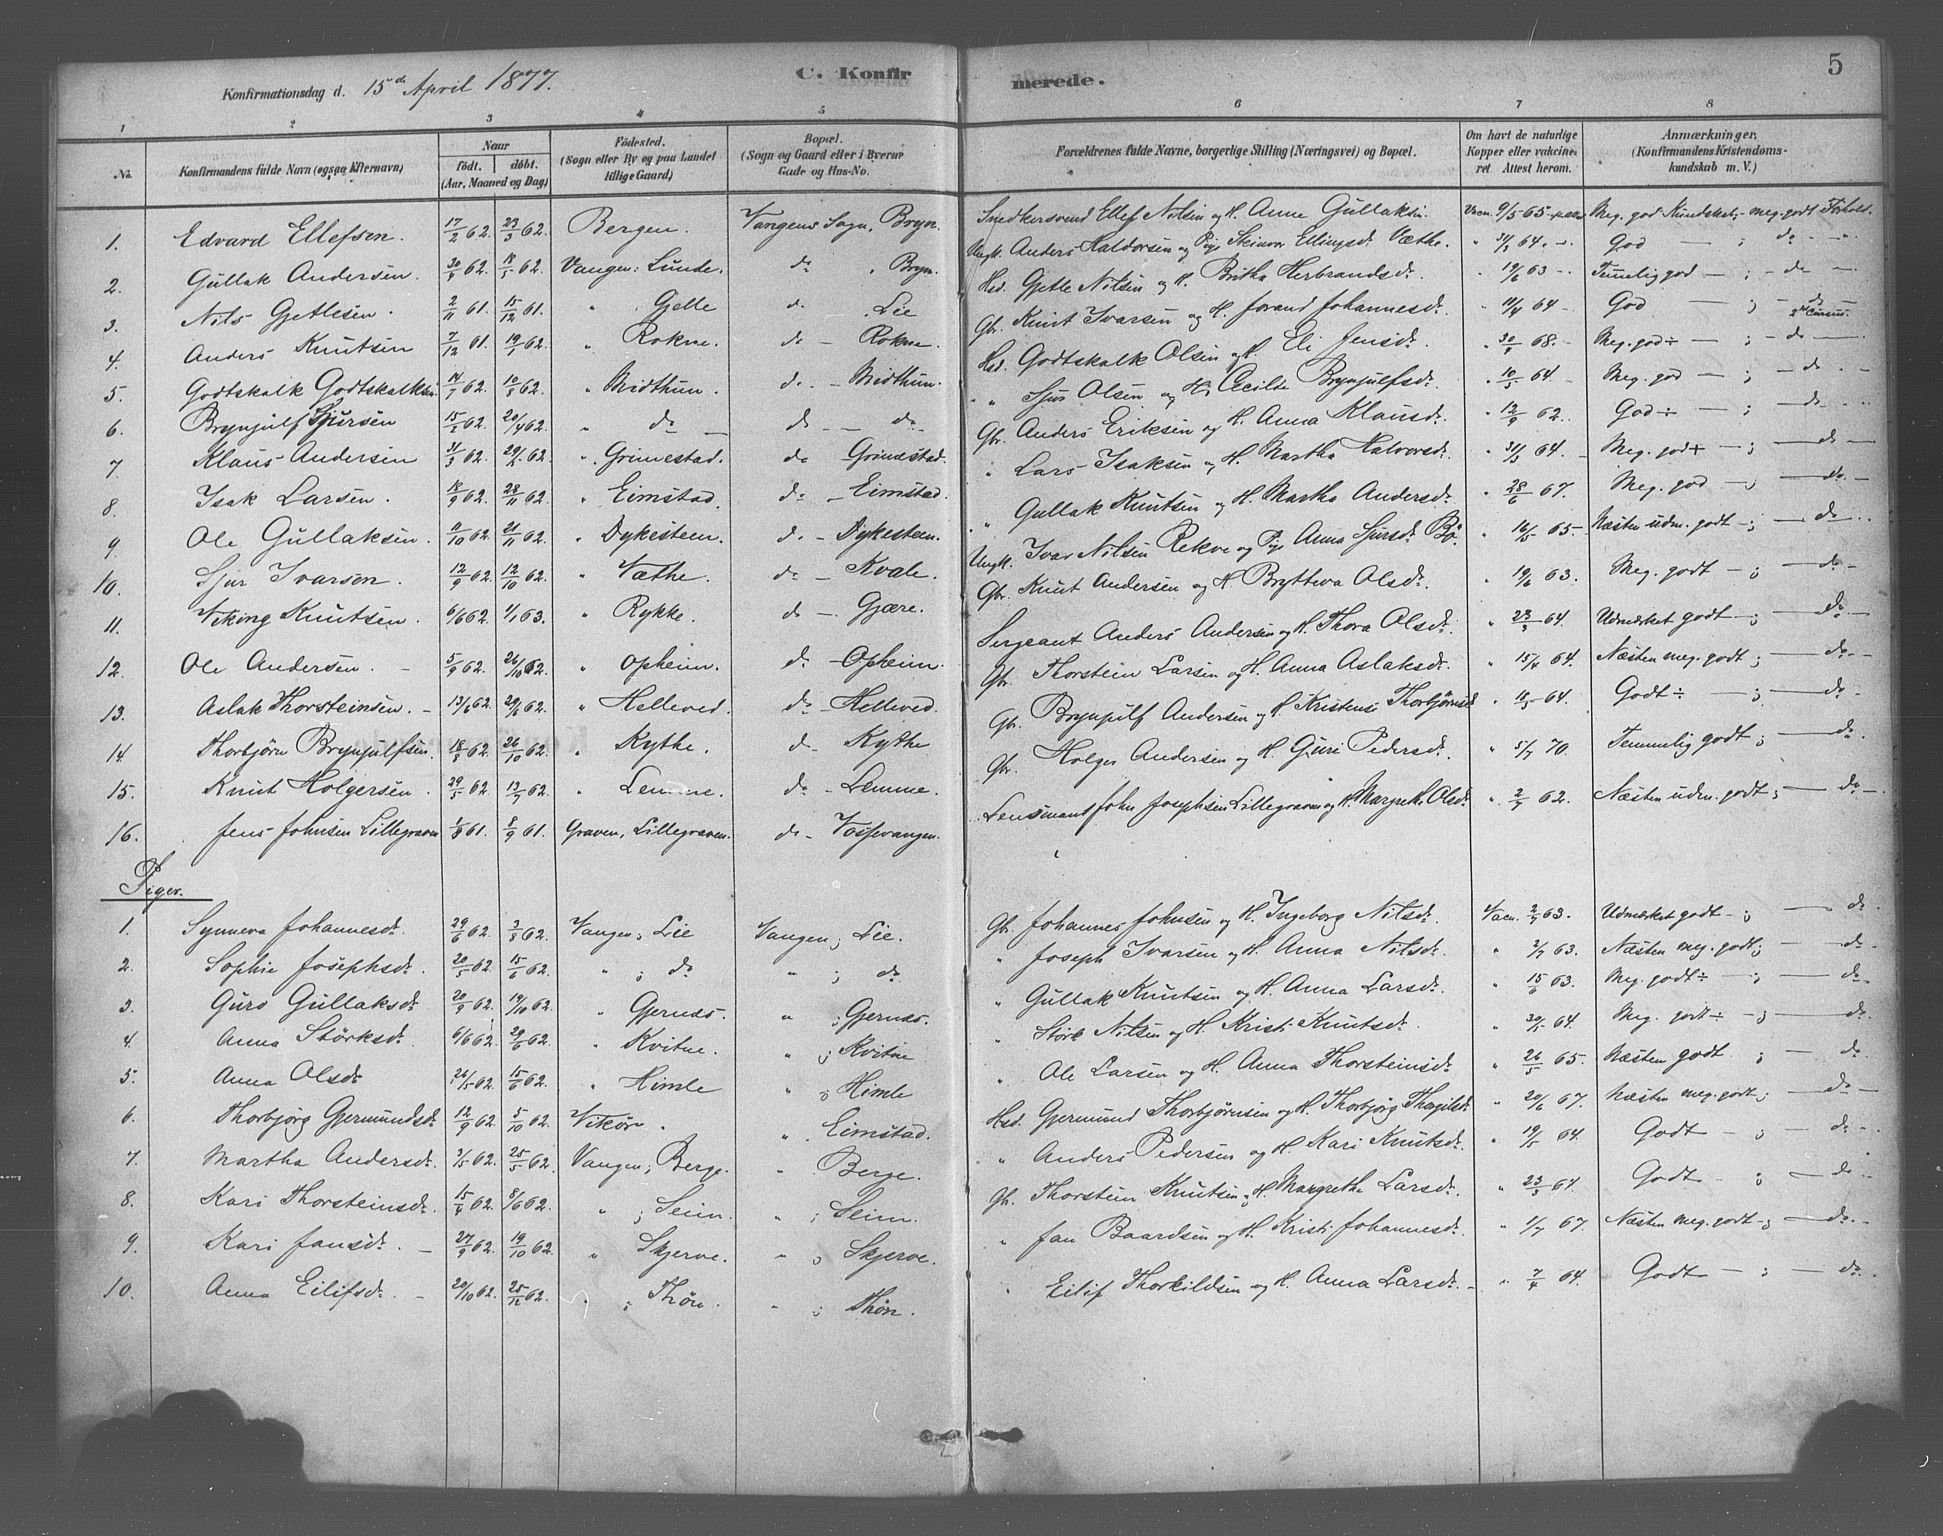 5
C. Konfirmerede.
Konfirmationsdag d. 15de April 1877.
1 2 3 4 5 6 7 8
No. Konfirmandens fulde Navn (ogsaa Efternavn) Naar født. døbt. (Aar, Maaned og Dag) Fødested. (Sogn eller By og paa Landet tillige Gaard.) Bopæl. (Sogn og Gaard eller i Byerne Gade og Hus-No. Forældrenes fulde Navne, borgerlige Stilling (Næringsvei) og Bopæl. Om havt de naturlige Kopper eller vaccineret. Attest herom. Anmærkninger, (Konfirmandens Kristendomskundskab m. V.)
1. Edvard Ellefsen. 17/2 62. 23/3 62. Bergen. Vangens Sogn, Bryn. Snedkersvend Ellef Nilsen og H. Anne Gullaksd. Vacn. 9/5 65 Meg. god Kundskab, meg. godt Forhold.
2. Gullak Andersen. 30/4 62. 18/5 62. Vangen: Lunde. do " Bryn. Ungk. Anders Haldorsen og Pige Steinvor Ellingsd. Væthe. " 31/3 64. God — ; do "
3. Nils Gjetlesen. 2/11 61. 15/12 61. " Gjelle d. Lie Hsd. Gjetle Nilsen og H. Britha Herbrandsdr. " 19/6 63 Temmelig god — ; do —
4. Anders Knutsen 7/12 61. 19/1 62. " Rokne. do — Rokne. Gbr. Knut Ivarsen og H. Jorand Johannesdr. " 11/4 64 God — ; — do — 2det Cursus.
5. Godtskalk Godtskalksen 14/7 62. 10/8 62. " Midthun. do — Midthun. Hsd. Godtskalk Olsen og H. Eli Jensdr. " 30/8 68. Meg. god ÷ — ; do —
6. Brynjulf Sjursen 15/2 62. 20/4 62. " do — do — do Sjur Olsen og H. Cecilie Brynjulfsdr. " 10/5 64. Meg. god — ; — do —
7. Klaus Andersen 31/3 62. 29/4 62. " Grimestad. do — Grimestad. Gbr. Anders Eriksen og H. Anna Klausdr. " 12/9 62. God ÷ — ; do
8. Isak Larsen. 18/9 62. 28/11 62. " Eimstad. do — Eimstad. " Lars Isaksen og H. Martha Halvorsdr. " 31/3 64. Meg. god + — ; — do —
9. Ole Gullaksen. 11/10 62. 21/11 62. " Dykesteen. do — Dykesteen. " Gullak Knutsen og H. Martha Andersdr. " 28/6 67. Meg. god — ; — do —
10. Sjur Ivarsen. 12/9 62. 12/10 62. " Væthe. do — Kvale. Ungk. Ivar Nilsen Rekve og Pige Anna Sjursdr. Bø. " 10/5 65. Næsten udm. godt ; — do
11. Viking Knutsen. 6/6 62. 1/1 63. " Rykke. do — Gjære. Gbr. Knut Andersen og H. Brytteva Olsdr. " 19/6 63. Meg. godt — ; — do —
12. Ole Andersen. 5/9 62. 26/10 62. " Opheim. do — Opheim. Sergeant Anders Andersen og H. Thora Olsdr. " 23/3 64. Udmærket godt — ; — do —
13. Aslak Thorsteinsen. 13/6 62. 29/6 62. " Helleved. do — Helleved. Gbr. Thorstein Larsen og H. Anna Aslaksdr. " 15/4 64. Næsten meg. godt ; — do —
14. Thorbjørn Brynjulfsen. 18/8 62. 26/10 62. " Kythe. do — Kythe Gbr. Brynjulf Andersen og H. Kristense Thorbjørnsd. " 18/5 64. Godt ÷ — ; — do —
15. Knut Holgersen. 29/5 62. 13/7 62. " Lemme. do — Lemme. Gbr. Holger Andersen og H. Guri Pedersdr. " 5/7 70. Temmelig godt ; — do —
16. Jens Johnsen Lillegraven 1/8 61. 8/9 61. Graven, Lillegraven. do — Vossevangen. Lensmand John Josephsen Lillegraven og H. Margrethe Olsdr. " 2/7 62. Næsten udm. godt ; — do —
Piger.
1. Synneva Johannesdr. 29/6 62. 3/8 62. Vangen; Lie Vangen; Lie. Gbr. Johannes Johnsen og H. Ingeborg Nilsdr. Vacn. 2/7 63. Udmærket godt — ; — do —
2. Sophie Josephsdr. 20/5 62. 15/6 62. " ; do " ; do " Joseph Ivarsen og H. Anna Nilsdr. " 2/7 63. Næsten meg. godt ; — do —
3. Guro Gullaksdr. 20/9 62. 19/10 62. " Gjernæs. " ; Gjernæs. " Gullak Knutsen og H. Anna Larsdr. " 15/6 63. Meg. godt ÷ — ; — do —
4. Anna Størksdr. 6/6 62. 29/6 62. " Kvitne. " ; Kvitne " Størk Nilsen og H. Kristi Knutsdr. " 30/5 64. Meg. godt ÷ — ; — do
5. Anna Olsdr. 26/5 62. 15/6 62. " Himle " ; Himle " Ole Larsen og H. Anna Thorsteinsdr. " 26/5 65 Næsten godt. ; — do
6. Thorbjørg Gjermundsdr. 12/9 62. 5/10 62. Vikør. " Eimstad. Hsd. Gjermund Thorbjørnsen og H. Thorbjørg Thorgilsdr. " 20/6 67. Næsten meg. godt ; — do —
7. Martha Andersdr. 3/5 62. 25/5 62. Vangen; Berge. " Berge. " Anders Pedersen og H. Kari Knutsdr. " 19/5 64. Godt — ; — do —
8. Kari Thorsteinsdr. 15/4 62. 8/6 62. " ; Seim. " ; Seim. Gbr. Thorstein Knutsen og H. Margrethe Larsdr. " 23/3 64. Godt — ; — do
9. Kari Jansdr. — 27/9 62. 19/10 62. " Skjerve. " ; Skjerve. " Jan Baardsen og H. Kristi Johannesdr. " 1/7 67. Næsten meg. godt ; — do —
10. Anna Eilifsdr. — 20/10 62. 25/12 62. " ; Thøn. " ; Thøn. " Eilif Thorkildsen og H. Anna Larsdr. " 7/4 64. Godt — ; — do